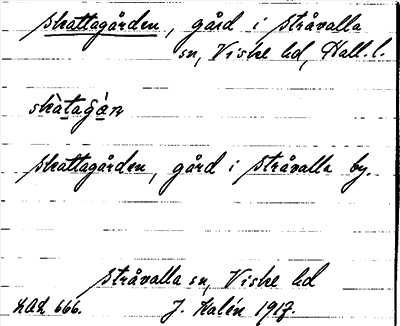 Skattagården, gård i Stråvalla
sn, Viske hd, Hall. l.
skàtagȧ̀n
Skattagården, gård i Stråvalla by.
Stråvalla sn, Viske hd
LAL 666. J. Kalén 1917.